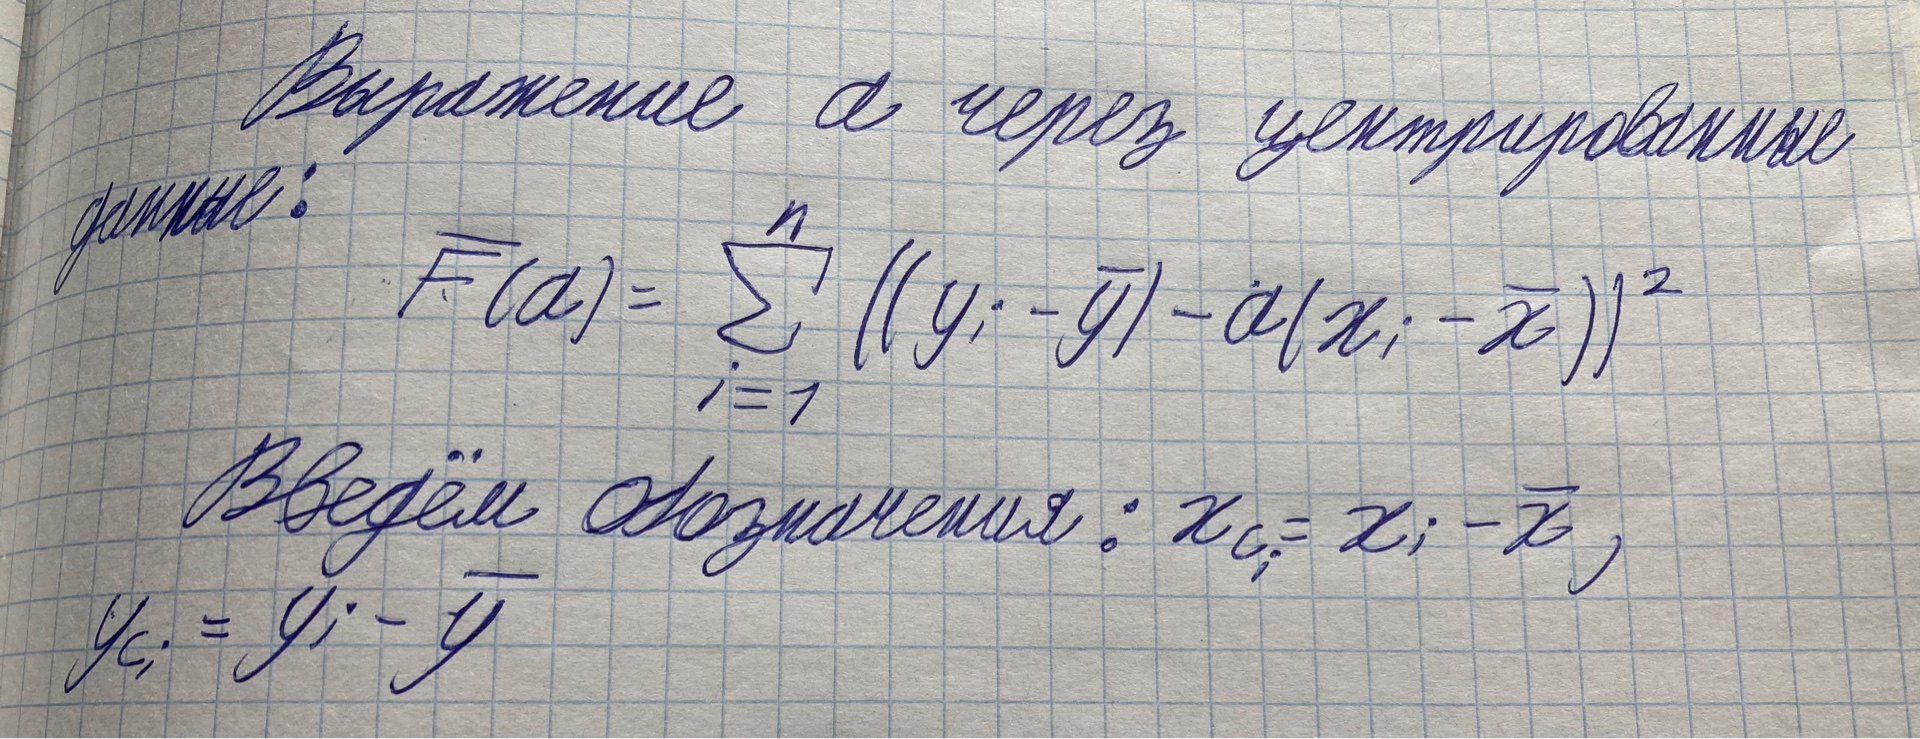 Выражение a через центрированные
данные:
F(a) = ∑ⁿᵢ₌₁ ((yᵢ - ȳ) - a(xᵢ - x̄))²
Введём обозначения: x_cᵢ = xᵢ - x̄,
y_cᵢ = yᵢ - ȳ